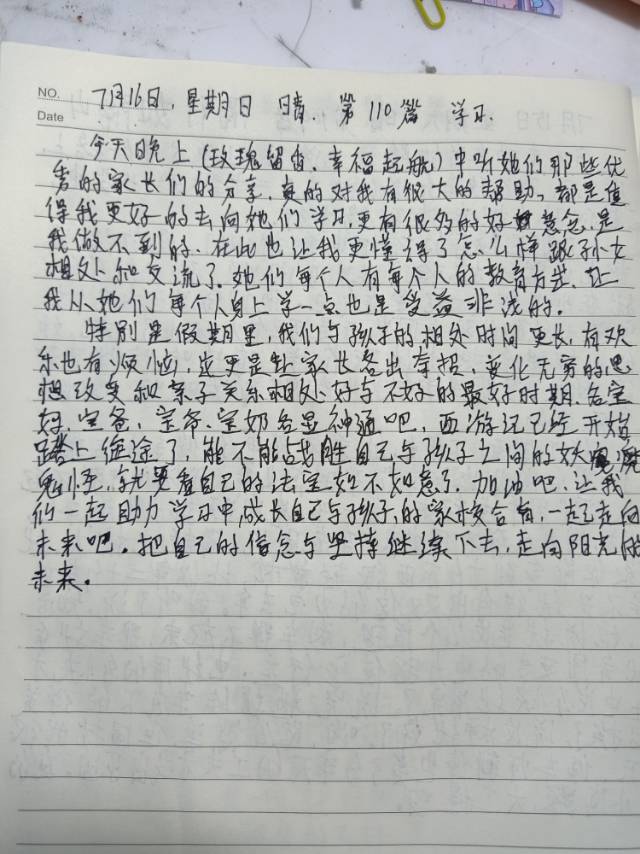 NO. 7月16日，星期日 晴. 第110篇 学习.
Date
今天晚上(玫瑰留香.幸福起航)中听她们那些优
秀的家长们的分享，真的对我有很大的帮助、都是值
得我更好的去向她们学习，更有很多的好意念.是
我做不到的.在此也让我更懂得了怎么样跟子女
相处和交流了.她们每个人有每个人的教育方法.让
我从她们每个人身上学一点也是受益非浅的.
特别是假期里，我们与孩子的相处时间更长，有欢
乐也有烦恼，应更是让家长各出奇招，变化无穷的思
想改变和亲子关系相处好与不好的最好时期.各宝
妈，宝爸，宝爷.宝奶各显神通吧，西游记已经开始
踏上征途了，能不能战胜自己与孩子之间的妖魔
鬼怪，就要看自己的法宝如不如意了.加油吧，让我
们一起助力学习中，成长自己与孩子，的家校合育，一起走向
未来吧。把自己的信念与坚持继续下去，走向阳光的
未来。